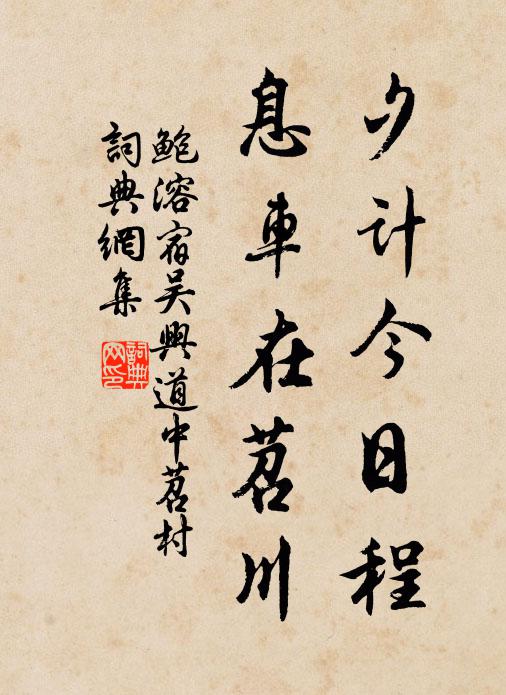 夕计今日程
息車在苕川
鲍溶宿吴興道中苕村
詞典網集
詞典
网印